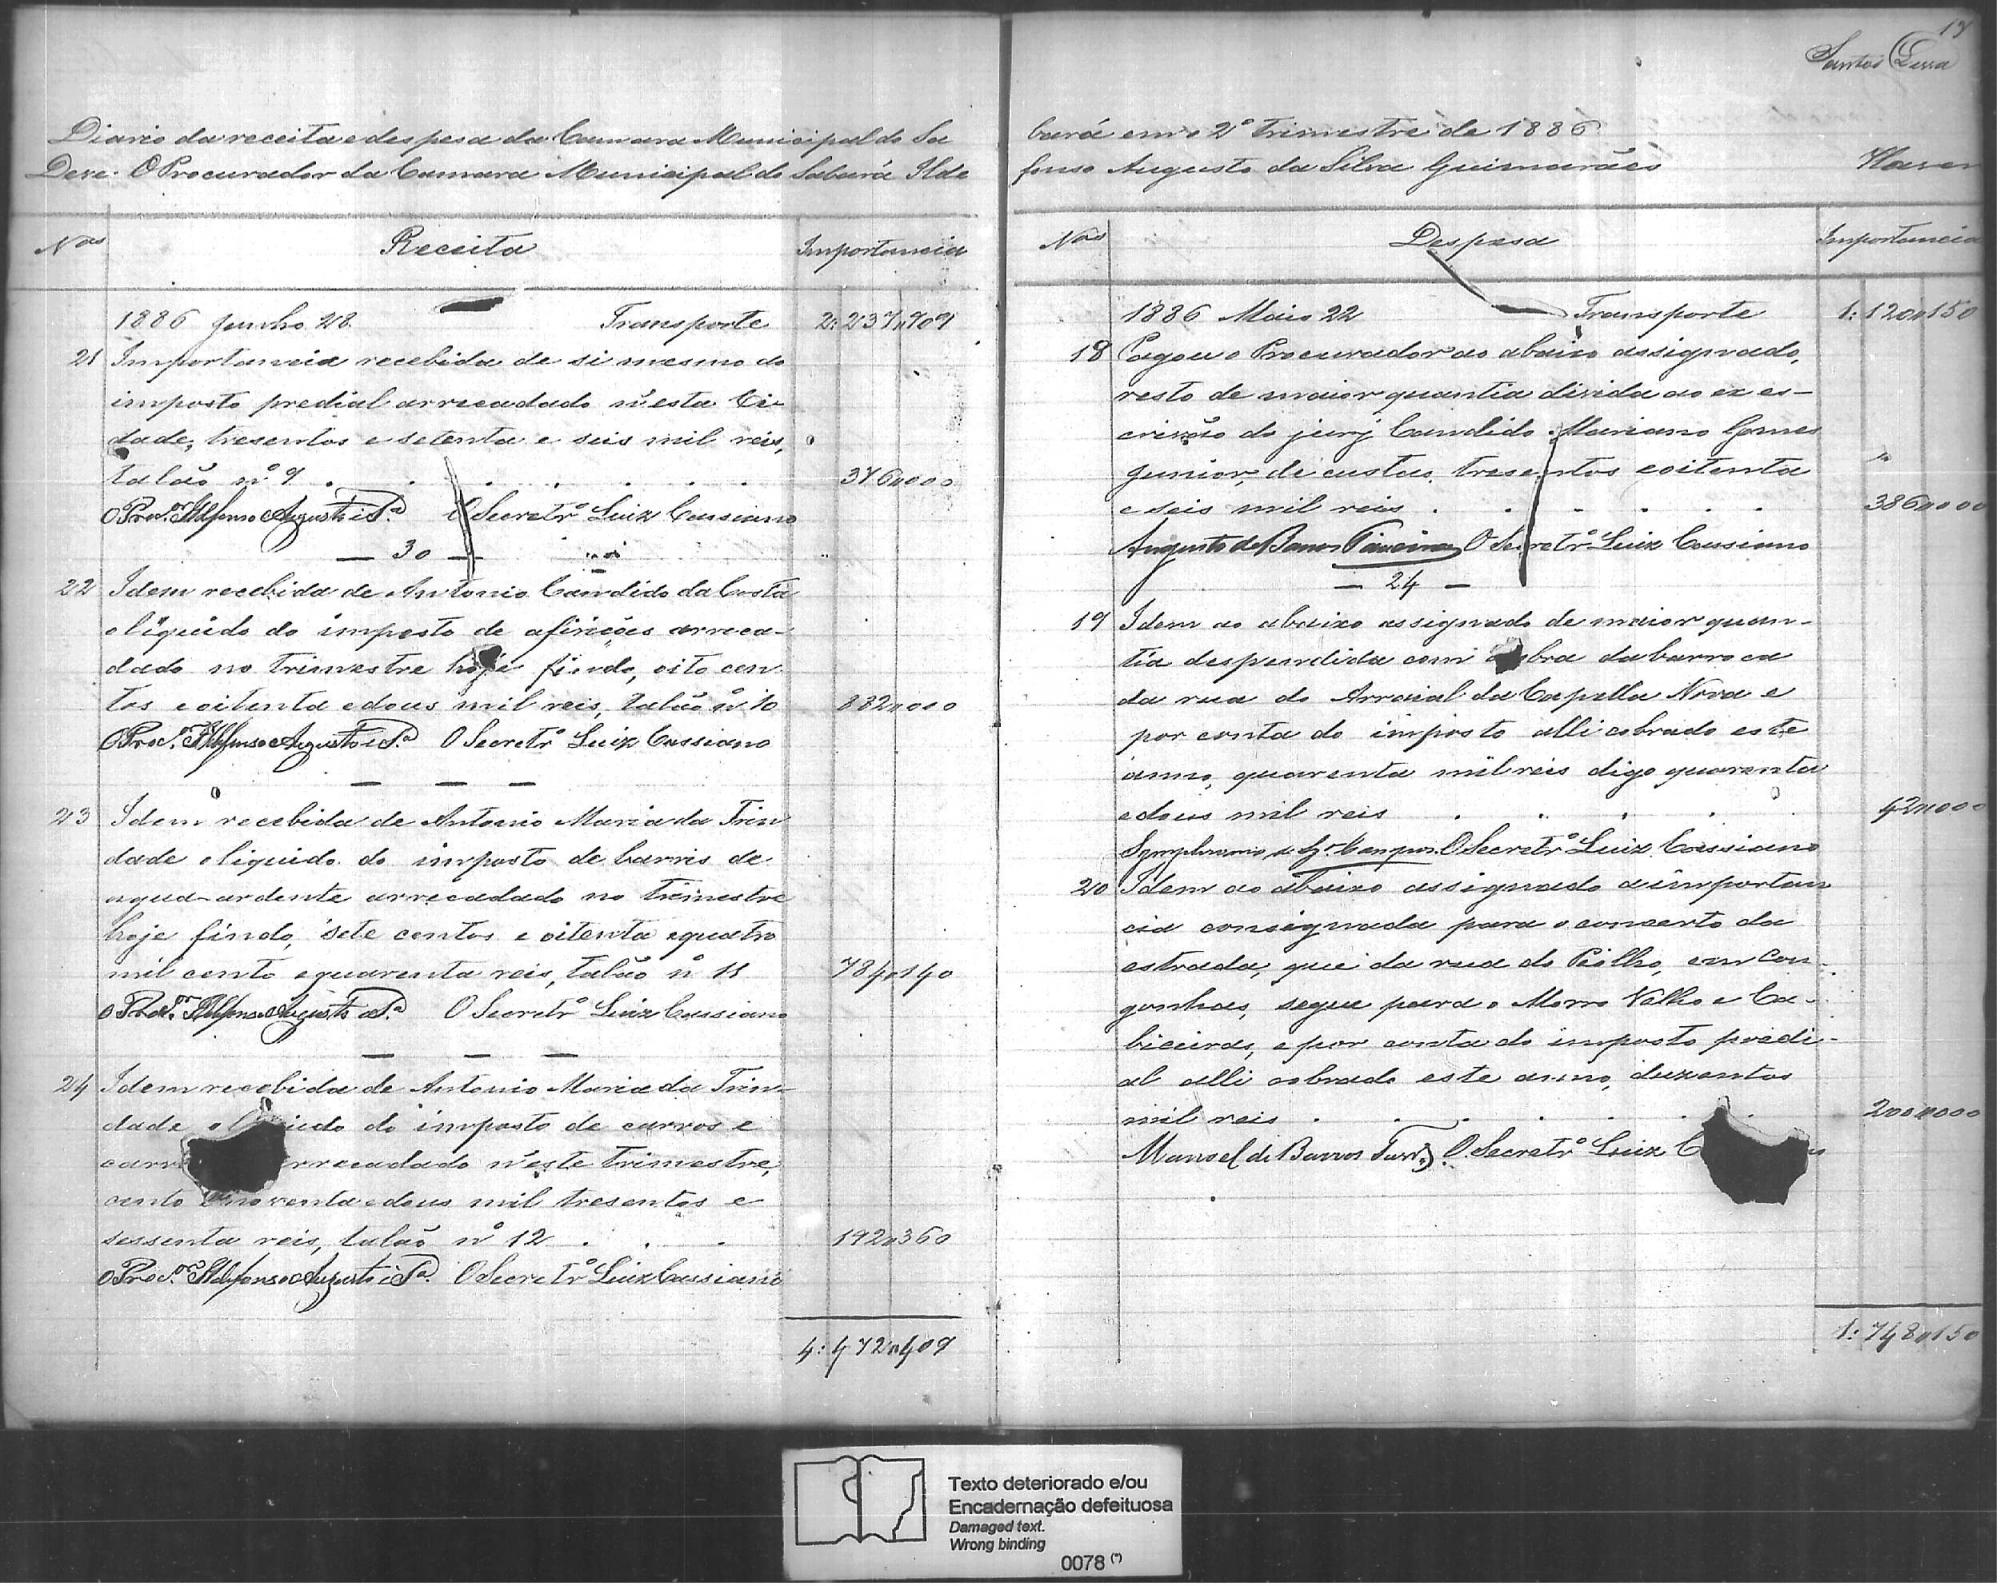 17
Santos Lessa
Diario da receita e despesa da Camara Municipal de Sa
Deve. O Procurador da Camara Municipal de Sabará Ilde
Nos Receita Importancia
1886 Junho 28. Transporte 2:237,,909
21 Importancia recebida de si mesmo do
imposto predial arrecadado n'esta Ci-
dade, tresentos e setenta e seis mil reis,
talão nº 9 . . . . . . . 376,,000
O Procor Ildefonso Augusto e Sª O Secretrº Luiz Cassiano
— 30 —
22 Idem recebida de Antonio Candido da Costa
o liquido do imposto de afirições arreca-
dado no trimestre hoje findo, oito cen-
tos e oitenta e dous mil reis, talão nº 10 882,,000
O Procor Ildefonso Augusto e Sª O Secretrº Luiz Cassiano
— — —
23 Idem recebida de Antonio Maria da Trin
dade o liquido do imposto de barris de
agua-ardente arrecadado no trimestre
hoje findo, sete centos e oitenta e quatro
mil cento e quarenta reis, talão nº 11 784,,140
O Procor Ildefonso Augusto e Sª O Secretrº Luiz Cassiano
— — —
24 Idem recebida de Antonio Maria da Trin-
dade o do imposto de carros e
n'este trimestre,
cento e noventa e dous mil tresentos e
sessenta reis, talão nº 12 . . . 192,,360
O Procor Ildefonso Augusto e Sª O Secretrº Luiz Cassiano
4:472,,409
bará em o 2º trimestre de 1886
fonso Augusto da Silva Guimarães Haver
Nos Despesa Importancia
1886 Maio 22 — Transporte 1:120,,150
18 Pagou o Procurador ao abaixo assignado,
resto de maior quantia divida ao ex es-
crivão do jury Candido Mariano Gomes
Junior, de custas, tresentos e oitenta
e seis mil reis . . . . . . 386,,000
Augusto de Barros O Secretrº Luiz Cassiano
— 24 —
19 Idem ao abaixo assignado de maior quan-
tia despendida com obra da barroca
da rua do Arraial da Capella Nova e
por conta do imposto alli cobrado este
anno, quarenta mil reis digo quarenta
e dous mil reis . . . . . 42,,000
O Secretrº Luiz Cassiano
20 Idem ao abaixo assignado a importan
cia consignada para o concerto da
estrada, que da rua do Piolho, em Con-
gonhas, segue para o Morro Velho e Ca-
biceiras, e por conta do imposto predi-
al alli cobrado este anno, duzentos
mil reis . . . . . . . 200,,000
Manoel de Barros O Secretrº Luiz
1:748,,150
Texto deteriorado e/ou
Encadernação defeituosa
Damaged text.
Wrong binding
0078 (*)